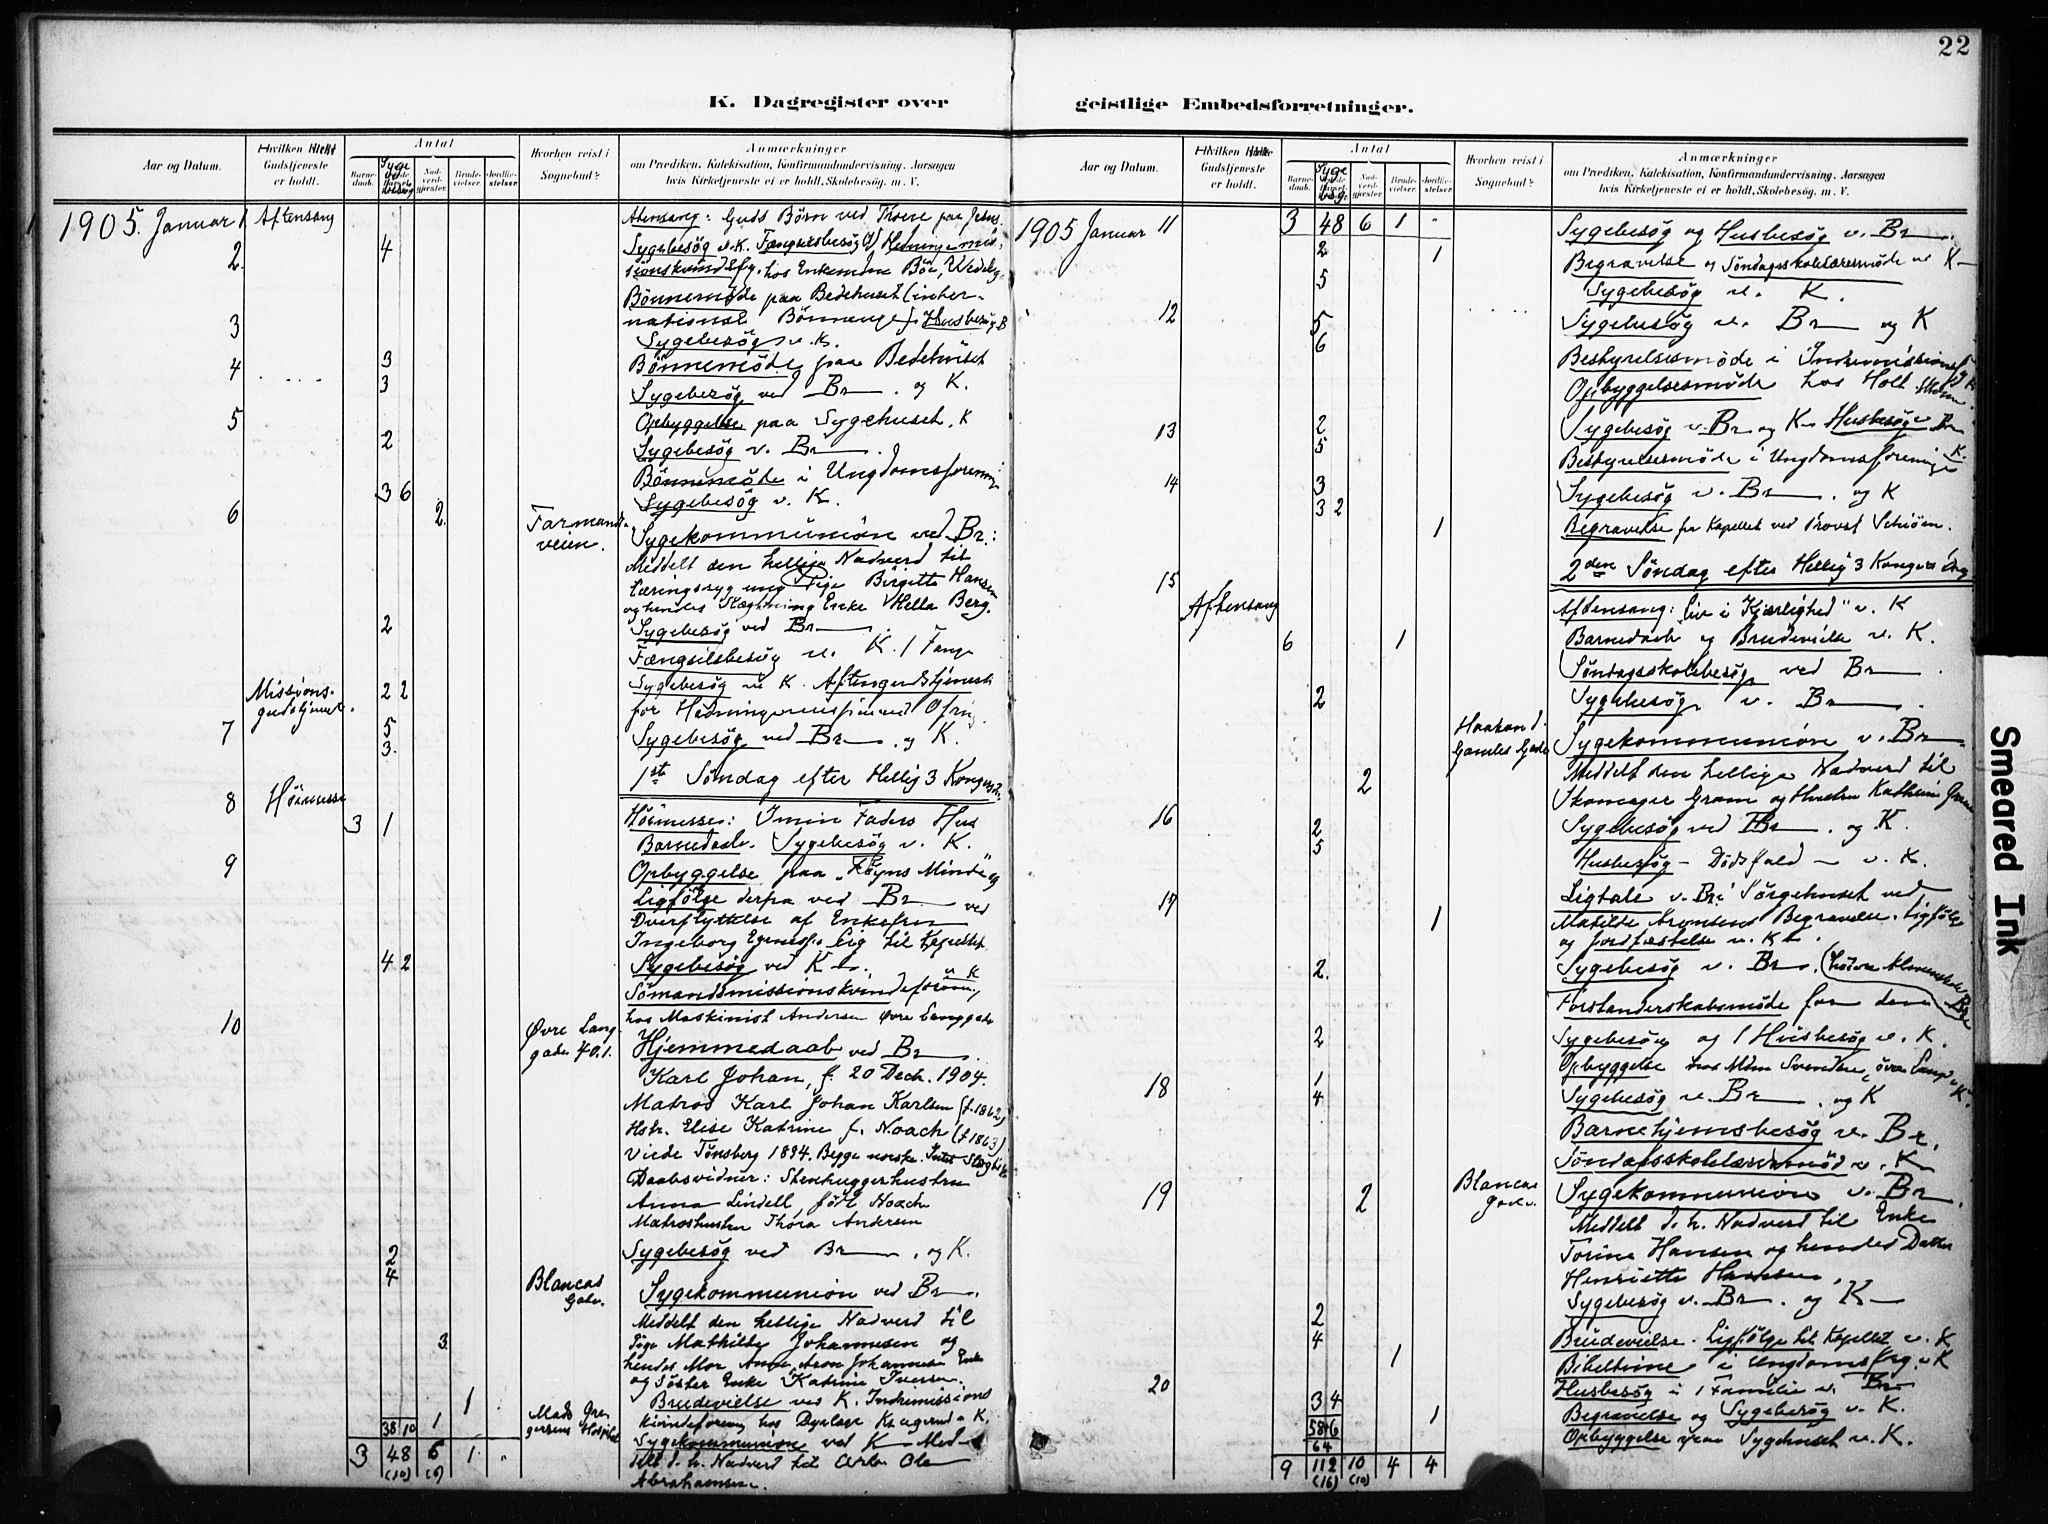 22
K. Dagregister over geistlige Embedsforretninger.
Aar og Datum.
Hvilken
Gudstjeneste
er holdt.
Antal
Barne-
daab.
Syge
besøg
Nad-
verd-
gjester.
Brude-
vielser.
Jordfæ-
stelser.
Hvorhen reist i
Sognebud?
Anmærkninger
om Prædiken, Katekisation, Konfirmandundervisning, Aarsagen
hvis Kirketjeneste ei er holdt, Skolebesøg, m. V.
1905. Januar 1 Aftensang
Aftensang: Guds Börn ved Troen paa Jesus
2 4 Sygebesög v. K. Fængselsbesög Hedningemis-
sionskvindefg. hos Enkemadme Böe,
Bönnemöde paa Bedehuset (inter-
3 national Bönneuge). Husbesög B
Sygebesög v. K.
3 Bönnemöde paa Bedehuset
4 3 Sygebesög ved Br. og K.
5 Opbyggelse paa Sygehuset. K
2 Sygebesög v. Br.
Bönnemöde i Ungdomsforening
3 6 Sygebesög v. K.
6 2 Farmands-
veien. Sygekommunion ved Br.:
Meddelt den hellige Nadverd til
Tæringssyg ung Pige Birgitte Hansen
og hendes Slægtning Enke Hella Berg.
2 Sygebesög ved Br.
Fængselsbesög v. K. 1 Fange
Missions-
gudstjeneste. 2 2 Sygebesög v. K. Aftengudstjeneste
for Hedningemissionen med Ofring.
7 5
3. Sygebesög ved Br. og K.
1ste Søndag efter Hellig 3 Kongersd.
8 Høimesse
3 1 Høimesse: I min Faders Hus
Barnedaab. Sygebesög v. K.
9 Opbyggelse paa "Föyns Minde" og
Ligfölge derfra ved Br ved
Overflyttelse af Enkefru
Ingeborg Lig til Kapellet
4 2 Sygebesög ved K.
Sömandsmissionskvindeforen. v. K
hos Maskinist Andersen Øvre Langgade
10 Øvre Lang-
gade 40.1. Hjemmedaab ved Br.
Karl Johan, f. 20 Dech. 1904.
Matros Karl Johan Karlsen (f. 1862)
Hstr. Elise Katrine f. Noach (f. 1863)
Viede Tönsberg 1894. Begge norske.
Daabsvidner: Stenhuggerhustru
Anna Lindell, født Noach
Matroshustru Thora Andersen
2
4 Sygebesög ved Br. og K.
Blancas
Gade. Sygekommunion ved Br.
Meddelt den hellige Nadverd til
3. Pige Mathilde Johannesen og
hendes Mor
og Søster Enke Katrine Iversen.
1 Brudevielse ved K. Indremissions
38 10 1 Mads Gre-
gersens Hospital kvindeforening hos K.
3 48 6 1 " Sygekommunion ved K Med-
(10) (6) delt d. h. Nadverd til Ole
Abrahamsen.
Aar og Datum.
Hvilken
Gudstjeneste
er holdt.
Antal
Barne-
daab.
Syge
besøg.
Nad-
verd-
gjester.
Brude-
vielser.
Jordfæ-
stelser.
Hvorhen reist i
Sognebud?
Anmærkninger
om Prædiken, Katekisation, Konfirmandundervisning, Aarsagen
hvis Kirketjeneste ei er holdt, Skolebesøg, m. V.
1905 Januar 11 3 48 6 1 " Sygebesög og Husbesög v. Br.
2 1 Begravelse og Söndagsskolelærermöde v. K
5 Sygebesög v. K.
12 5
6 Sygebesög v. Br og K
Bestyrelsesmöde i Indremissionsfg
Opbyggelsesmöde hos Holt
13 2
5 Sygebesög v. Br og K Husbesög v. Br
Bestyrelsesmöde i Ungdomsforeningen K.
14 3
3 2 Sygebesög v. Br. og K
1 Begravelse fra Kapellet ved Provst Schiørn.
2den Søndag efter Hellig 3 Kongers Dag
15 Aftensang
Aftensang: Liv i Kjærlighed" v. K
6 1 Barnedaab og Brudevielse v. K.
Söndagsskolebesög ved Br
2 Sygebesög v. Br.
Haakon d.
Gamles Gade Sygekommunion v. Br.
2 Meddelt den hellige Nadverd til
Skomager Gram og Hustru Kathrine Gram
16 2
5 Sygebesög ved Br. og K.
Husbesög - Dödsfald - v. K.
17 Ligtale v. Br i Sørgehuset ved
1 Matilde Arentsens Begravelse. Ligfölge
og Jordfæstelse v. K.
2. Sygebesög v. Br.
Forstanderskabsmöde for den höiere Almenskole Br
2 Sygebesög og 1 Husbesög v. K.
Opbyggelse hos Mdm Svendsen, övre Langg. v. K.
18 1
4 Sygebesög v. Br. og K
Barnehjemsbesög v. Br.
Söndagsskolelærermöd v. K
19 2 Blancas
Gade. Sygekommunion v. Br.
Meddelt d. h. Nadverd til Enke
Torine Hansen og hendes Datter
Henriette Hansen.
2
4 Sygebesög v. Br. og K
1 Brudevielse. Ligfölge til Kapellet v. K
Bibeltime i Ungdomsfrg. v. K
20 Husbesög i 1 Familie v. Br
3 4 1 Begravelse og Sygebesög v. K.
58 6
64 Opbyggelse paa Sygehuset v. K.
9 112 10 4 4
(16) (10)
Smeared Ink